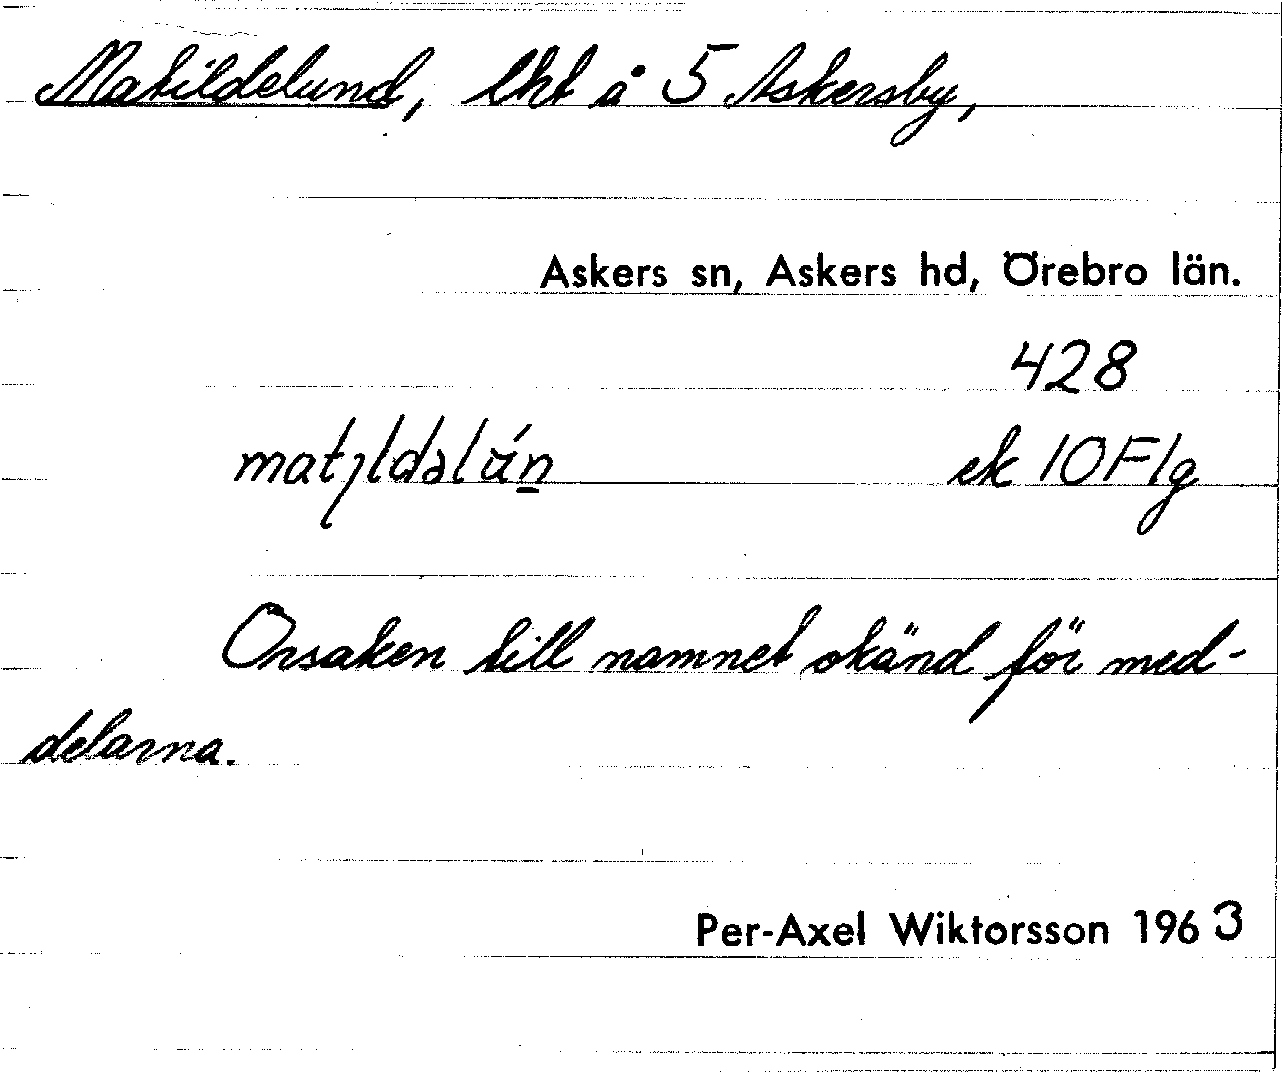 Matildelund, lht å 5 Askersby,
Askers sn, Askers hd, Örebro län.
428
ek 10F1g
Orsaken till namnet okänd för med-
delarna.
Per-Axel Wiktorsson 1963